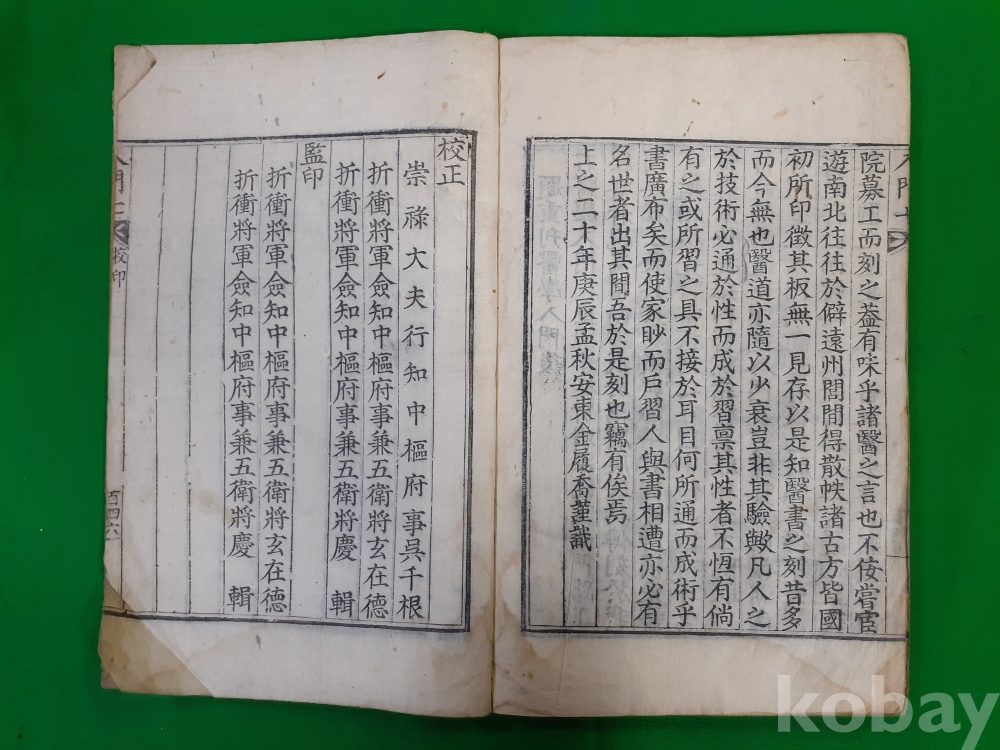 院募工而刻之葢有味乎諸醫之言也不佞嘗宦
遊南北往往於僻遠州閭間得散帙諸古方皆國
初所印徵其板無一見存以是知醫書之刻昔多
而今無也醫道亦隨以少衰豈非其驗歟凡人之
於技術必通於性而成於習禀其性者不恆有倘
有之或所習之具不接於耳目何所通而成術乎
書廣布矣而使家眇而戶習人與書相遭亦必有
名世者出其間吾於是刻也竊有俟焉
上之二十年庚辰孟秋安東金履喬謹識
校正
崇祿大夫行知中樞府事吳千根
折衝將軍僉知中樞府事兼五衛將玄在德
折衝將軍僉知中樞府事兼五衛將慶輯
監印
折衝將軍僉知中樞府事兼五衛將玄在德
折衝將軍僉知中樞府事兼五衛將慶輯
入門
校印
百四六
kobay